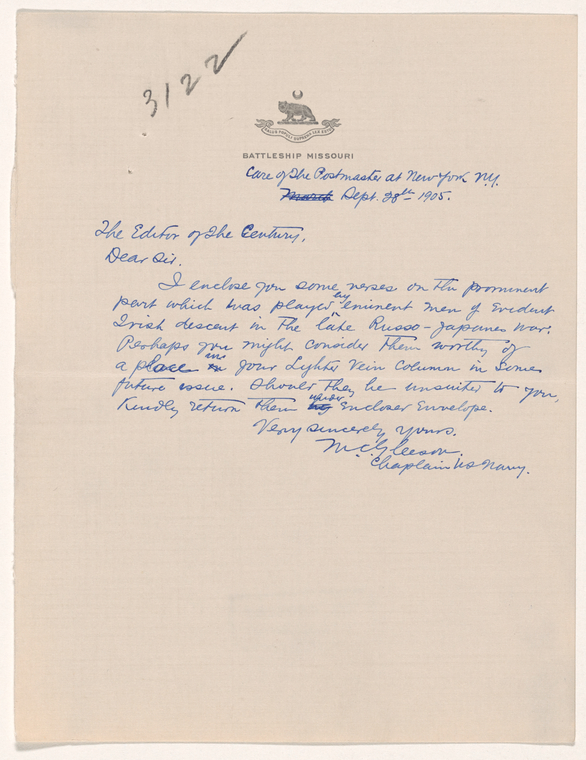 3122
SALUS POPULI SUPREMA LEX ESTO
BATTLESHIP MISSOURI
Care of The Postmaster at New York N.Y.
March Sept. 28th 1905.
The Editor of The Century,
Dear Sir.
I enclose you some verses on the prominent
part which was played by eminent men of Evident
Irish descent in the late Russo-Japanese war.
Perhaps you might consider them worthy of
a place in in your Lighter Vein column in some
future issue. Should they be unsuited to you,
Kindly return them under Encloser Envelope.
Very sincerely yours.
M.C. Gleeson.
Chaplain US Navy.